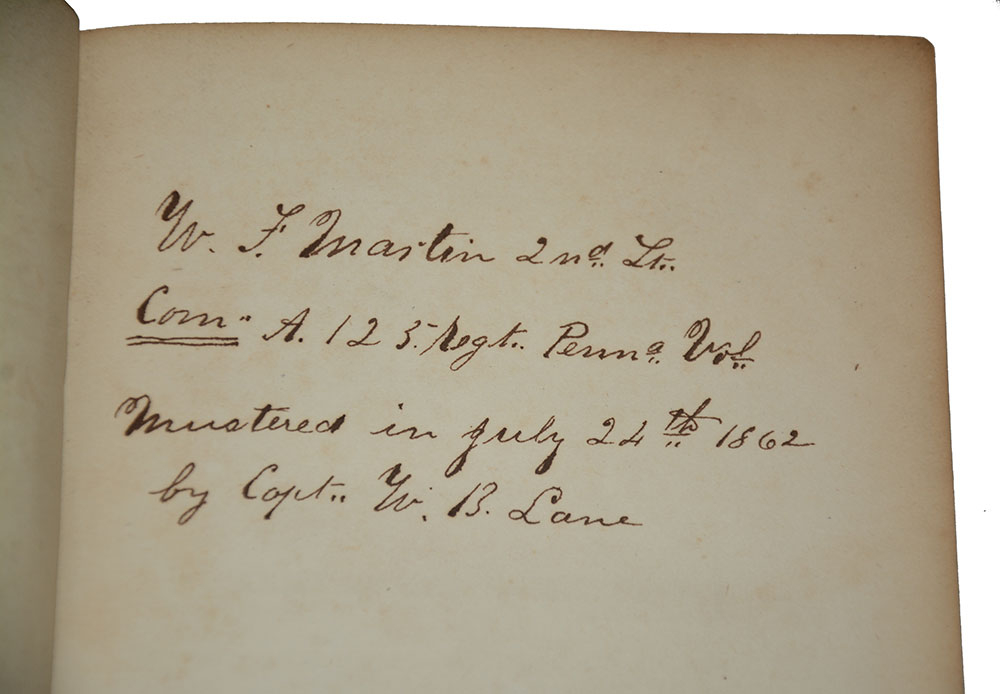 W. F. Martin 2nd Lt.
Com" A. 125. Regt. Penna. Vol.
Mustered in July 24th 1862
by Capt. W. B. Lane